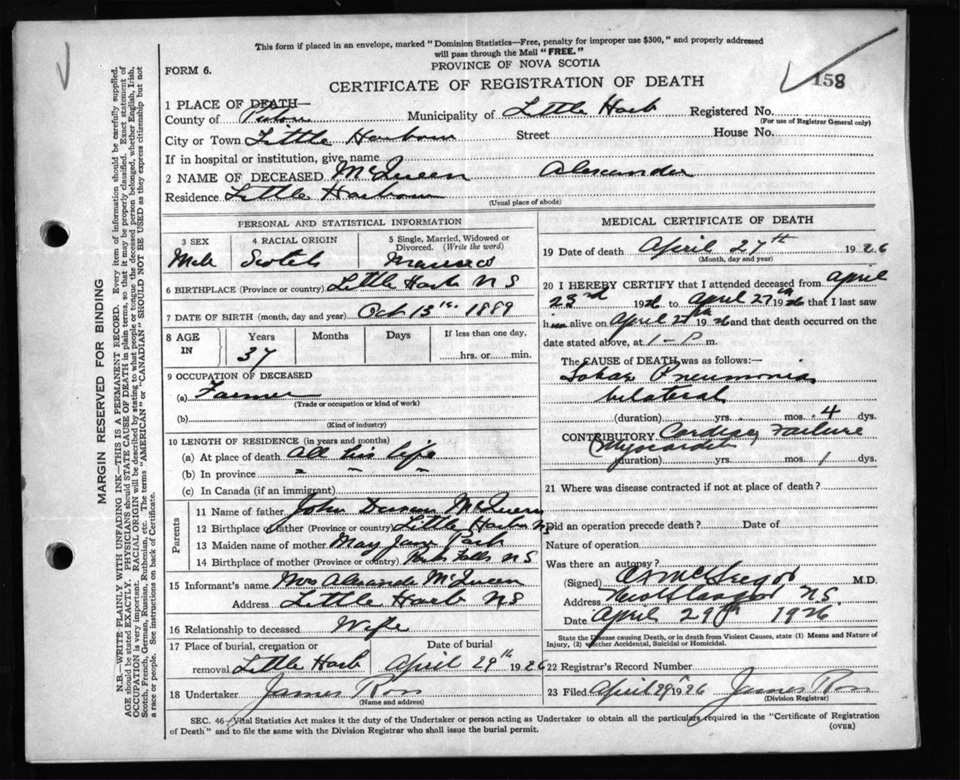 This form if placed in an envelope, marked "Dominion Statistics—Free, penalty for improper use $300," and properly addressed
will pass through the Mail "FREE."
PROVINCE OF NOVA SCOTIA
FORM 6.
CERTIFICATE OF REGISTRATION OF DEATH
158
1 PLACE OF DEATH—
County of Pictou Municipality of Little Harb Registered No.
(For use of Registrar General only)
City or Town Little Harbour Street House No.
If in hospital or institution, give name
2 NAME OF DECEASED McQueen Alexander
Residence Little Harbour
(Usual place of abode)
PERSONAL AND STATISTICAL INFORMATION
3 SEX 4 RACIAL ORIGIN 5 Single, Married, Widowed or Divorced. (Write the word)
Male Scotch Married
6 BIRTHPLACE (Province or country) Little Harb N S
7 DATE OF BIRTH (month, day and year) Oct 13th 1889
8 AGE IN Years Months Days If less than one day,
37 hrs. or min.
9 OCCUPATION OF DECEASED
(a) Farmer
(Trade or occupation or kind of work)
(b)
(Kind of industry)
10 LENGTH OF RESIDENCE (in years and months)
(a) At place of death All his life
(b) In province " " "
(c) In Canada (if an immigrant)
Parents
11 Name of father John Duncan McQueen
12 Birthplace of father (Province or country) Little Harbr NS
13 Maiden name of mother May Jane Park
14 Birthplace of mother (Province or country) Falls N S
15 Informant's name Mrs McQueen
Address Little Harb NS
16 Relationship to deceased Wife
17 Place of burial, cremation or Date of burial
removal Little Harb April 29th 1926
18 Undertaker James Ross
(Name and address)
MEDICAL CERTIFICATE OF DEATH
19 Date of death April 27th 1926
(Month, day and year)
20 I HEREBY CERTIFY that I attended deceased from April
23rd 1926 to April 27th 1926 that I last saw
him alive on April 27th 1926 and that death occurred on the
date stated above, at 1-P m.
The CAUSE OF DEATH was as follows:—
Lobar Pneumonia
bilateral
(duration) yrs. mos. 4 dys.
CONTRIBUTORY Cardiac Failure
(Myocardit
(duration) yrs. mos. 1 dys.
21 Where was disease contracted if not at place of death?
Did an operation precede death? Date of
Nature of operation
Was there an autopsy?
(Signed) McGregor M.D.
Address New Glasgow NS
Date April 29th 1926
State the Disease causing Death, or in death from Violent Causes, state (1) Means and Nature of
Injury, (2) whether Accidental, Suicidal or Homicidal.
22 Registrar's Record Number
23 Filed April 29th 1926 James Ross
(Division Registrar)
SEC. 46—Vital Statistics Act makes it the duty of the Undertaker or person acting as Undertaker to obtain all the particulars required in the "Certificate of Registration
of Death" and to file the same with the Division Registrar who shall issue the burial permit.
(OVER)
MARGIN RESERVED FOR BINDING
N.B.—WRITE PLAINLY WITH UNFADING INK—THIS IS A PERMANENT RECORD. Every item of information should be carefully supplied.
AGE should be stated EXACTLY. PHYSICIANS should STATE CAUSE OF DEATH in plain terms, so that it may be properly classified. Exact statement of
OCCUPATION is very important. RACIAL ORIGIN will be described by stating to what people or tongue the deceased person belonged, whether English, Irish,
Scotch, French, German, Russian, Ruthenian, etc. The terms "AMERICAN" or "CANADIAN" SHOULD NOT BE USED as they express citizenship but not
a race or people. See instructions on back of Certificate.